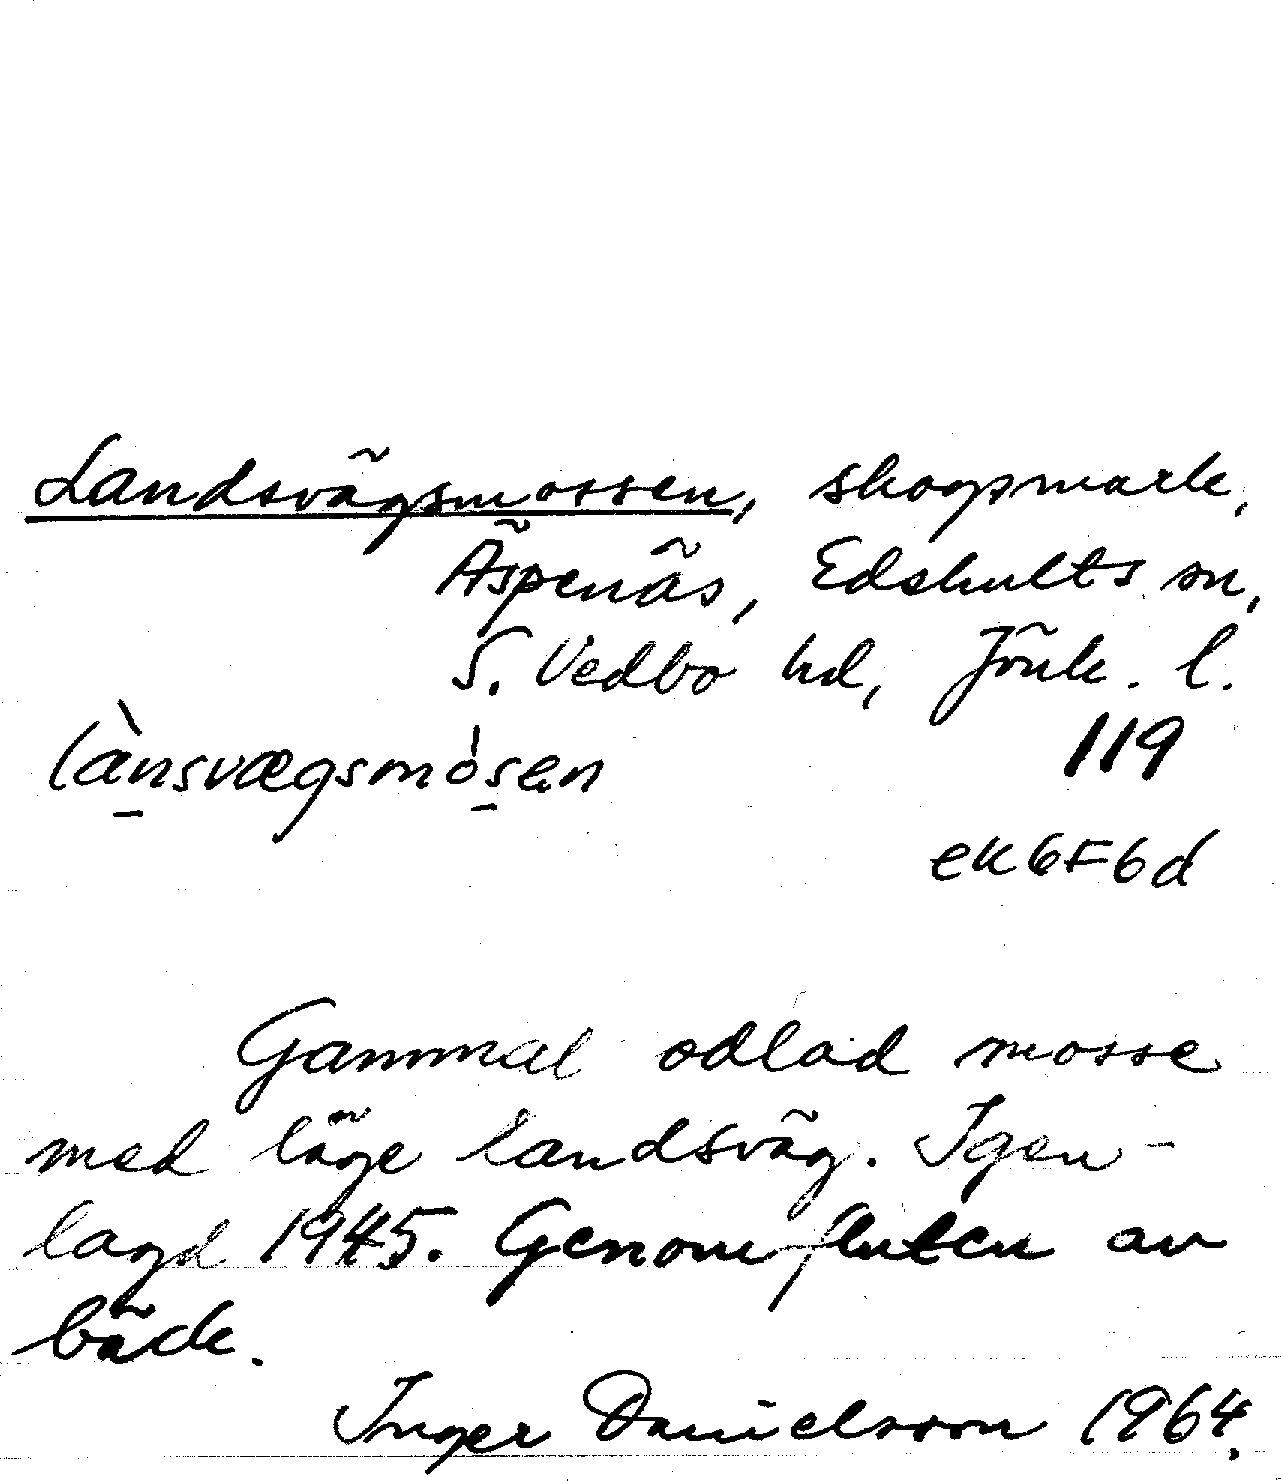 Landsvägsmossen, skogsmark,
Äspenäs, Edshults sn,
S. Vedbo hd, Jönk. l.
lànsvægsmòsen
119
ek6F6d
Gammal odlad mosse
med läge landsväg. Igen-
lagd 1945. Genomfluten av
bäck.
Inger Danielsson 1964.